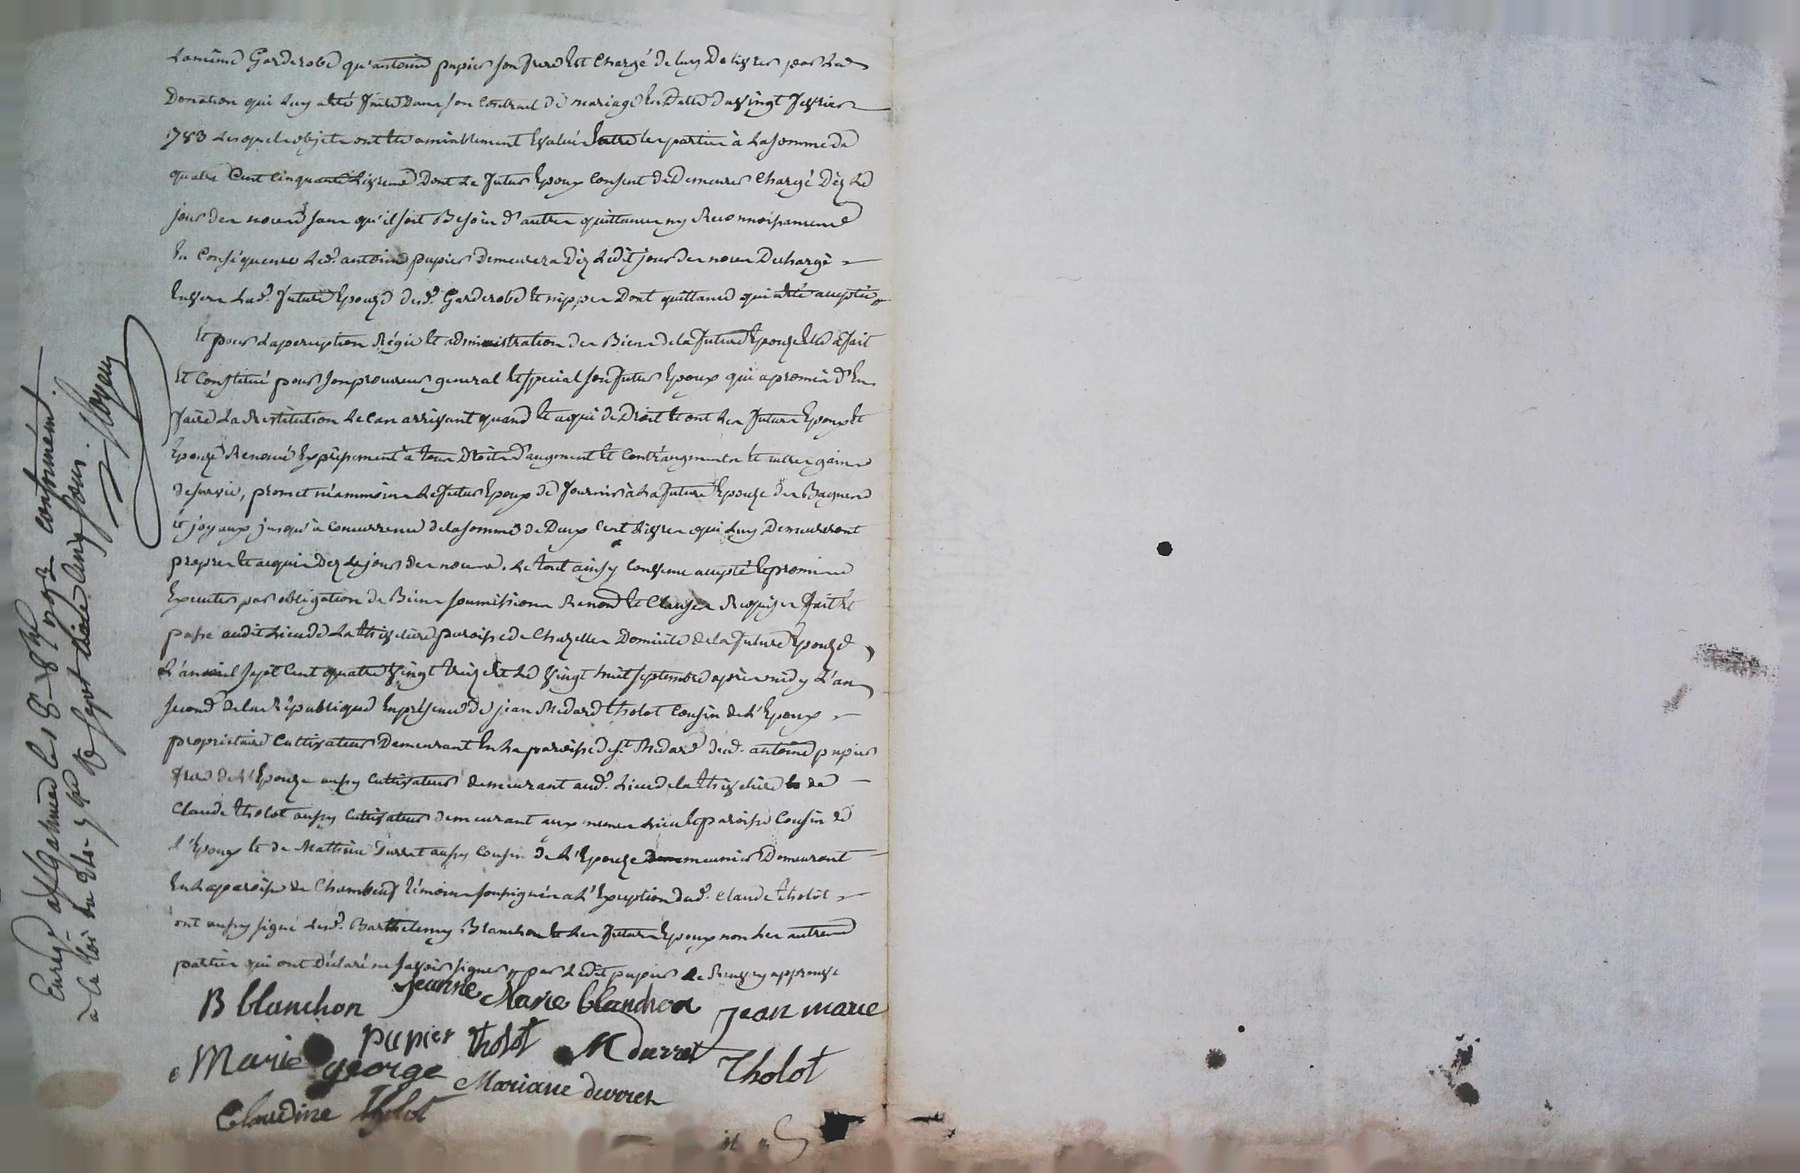 La même Garderobe qu'antoine pupier son frere Est Chargé de luy Delivrer par La
Donation qui Luy a été faite Dans son Contrat de mariage En Datte du vingt fevrier
1783 Lesquels objets ont été amiablement Evalués Entre les parties à La somme de
quatre Cent Cinquante Livres Dont Le futur Epoux Consent de Demeurer Chargé Dèz Le
jour des noces sans qu'il soit Besoin d'autre quittance ny Reconnoissance
En Conséquence Led. antoine pupier demeurera Dèz Ledit jour des noces Dechargé
Envers Lad. future Epouze desd. Garderobe Et nippes Dont quittance qui a été acceptée
Et pour La perception Régie Et administration des Biens de la future Epouze Elle a fait
Et Constitué pour son procureur general Et special son futur Epoux qui a promis d'En
faire La Restitution Le Cas arrivant quand Et a qui de Droit Et ont Les futurs Epoux Et
Epouze Renoncé Expressement à tous Droits d'augment Et Contr'augments Et autres gains
de survie, promet néammoins Le futur Epoux de fournir à La future Epouze des Bagues
et joyaux jusqu'à Concurrence de la somme de Deux Cent Livres qui Luy Demeureront
propres Et acquis Dez Le jour des noces. Le tout ainsy Convenu accepté Et promis
Executer par obligation de Biens soumissions Renond. Et Clauses Requises fait Et
passé audit Lieu de La thiveliere paroisse de Chazelles Domicile de la future Epouze
L'an mil sept Cent quatre vingt treize Et Le vingt huit septembre après midy L'an
second de la République En présence de jean Medard tholot Cousin de L'Epoux
proprietaire Cultivateur Demeurant En La paroisse de St. Medard dud. antoine pupier
frere de L'Epouze aussy Cultivateur demeurant aud. Lieu de la thiveliere de
Claude tholot aussy Cultivateur demeurant aux memes Lieu Et paroisse Cousin de
l'Epoux Et de Mathieu Durret aussy Cousin de L'Epouze meunier Demeurant
En La paroisse de Chambeuf témoins soussignés a L'Exception dud. Claude tholot
ont aussy signé Led. Barthelemy Blanchon Et Les futurs Epoux non Les autres
parties qui ont Déclaré ne savoir signer par Ledit pupier Le Renvoy approuvé
B blanchon Jeanne Marie blanchon Jean marie
pupier tholot M durret Tholot
Marie george Mariane durret
Claudine tholot
Enreg. a St Galmier le 8 8bre 1793 conformément
a la loi du